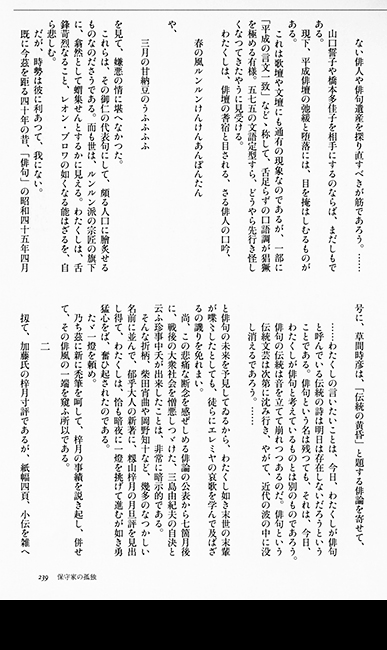 ない俳人や俳句遺産を採り直すべきが筋であろう。……
山口誓子や橋本多佳子を相手にするのならば、まだしもで
ある。
現下、平成俳壇の弛緩と堕落には、目を掩はしむるものが
ある。
これは歌壇や文壇にも通有の現象なのであるが、一部に
「平成の言文一致」などと称して、舌足らずの口語調が猖獗
を極める有様。五七五の文語定型すら、どうやら先行き怪し
くなってきたやうに見受ける。
わたくしは、俳壇の耆宿とも目される、さる俳人の口吟、
春の風ルンルンけんけんあんぽんたん
や、
三月の甘納豆のうふふふふ
を見て、嫌悪の情に堪へなかった。
これらは、その御仁の代表句にして、頗る人口に膾炙せる
ものなのださうである。而も世は、ルンルン派の宗匠の旗下
に、翕然として蝟集せんとするかに見える。わたくしは、舌
鋒苛烈なること、レオン・ブロワの如くなる能はざるを、自
ら悲しむ。
だが、時勢は彼に利あって、我にない。
既に今茲を距る四十年の昔、「俳句」の昭和四十五年四月
号に、草間時彦は、「伝統の黄昏」と題する俳論を寄せて、
……わたくしの言いたいことは、今日、わたくしが俳句
と呼んでいる伝統の詩は明日は存在しないだろうという
ことである。俳句という名は残っても、それは、今日、
わたくしが俳句と考えているものとは別のものであろう。
俳句の伝統は音を立てて崩れつつあるのだ。俳句という
伝統文芸は次第に沈み行き、やがて、近代の波の中に没
し消えるであろう。……
と俳句の未来を予見してゐるから、わたくし如き末世の末輩
が喋々したとしても、徒らにエレミヤの哀歌を学んで及ばざ
るの譏りを免れまい。
尚、この悲痛な断念を感ぜしめる俳論の公表から七箇月後
に、戦後の大衆社会を憎悪しつゞけた、三島由紀夫の自決と
云ふ珍事中夭が出来したことは、非常に暗示的である。
そんな折柄、柴田宵曲や岡野知十など、幾多のなつかしい
名前に並んで、郁乎大人の新著に、籾山梓月の月旦評を見出
し得て、わたくしは、恰も暗夜に一燈を挑げて進むが如き勇
猛心をば、奮ひ起されたのである。
たゞ一燈を頼め。
乃ち茲に新に禿筆を呵して、梓月の事績を説き起し、併せ
て、その俳風の一端を窺ふ所以である。
二
扨て、加藤氏の梓月寸評であるが、紙幅四頁、小伝を雑へ
239 保守家の孤独